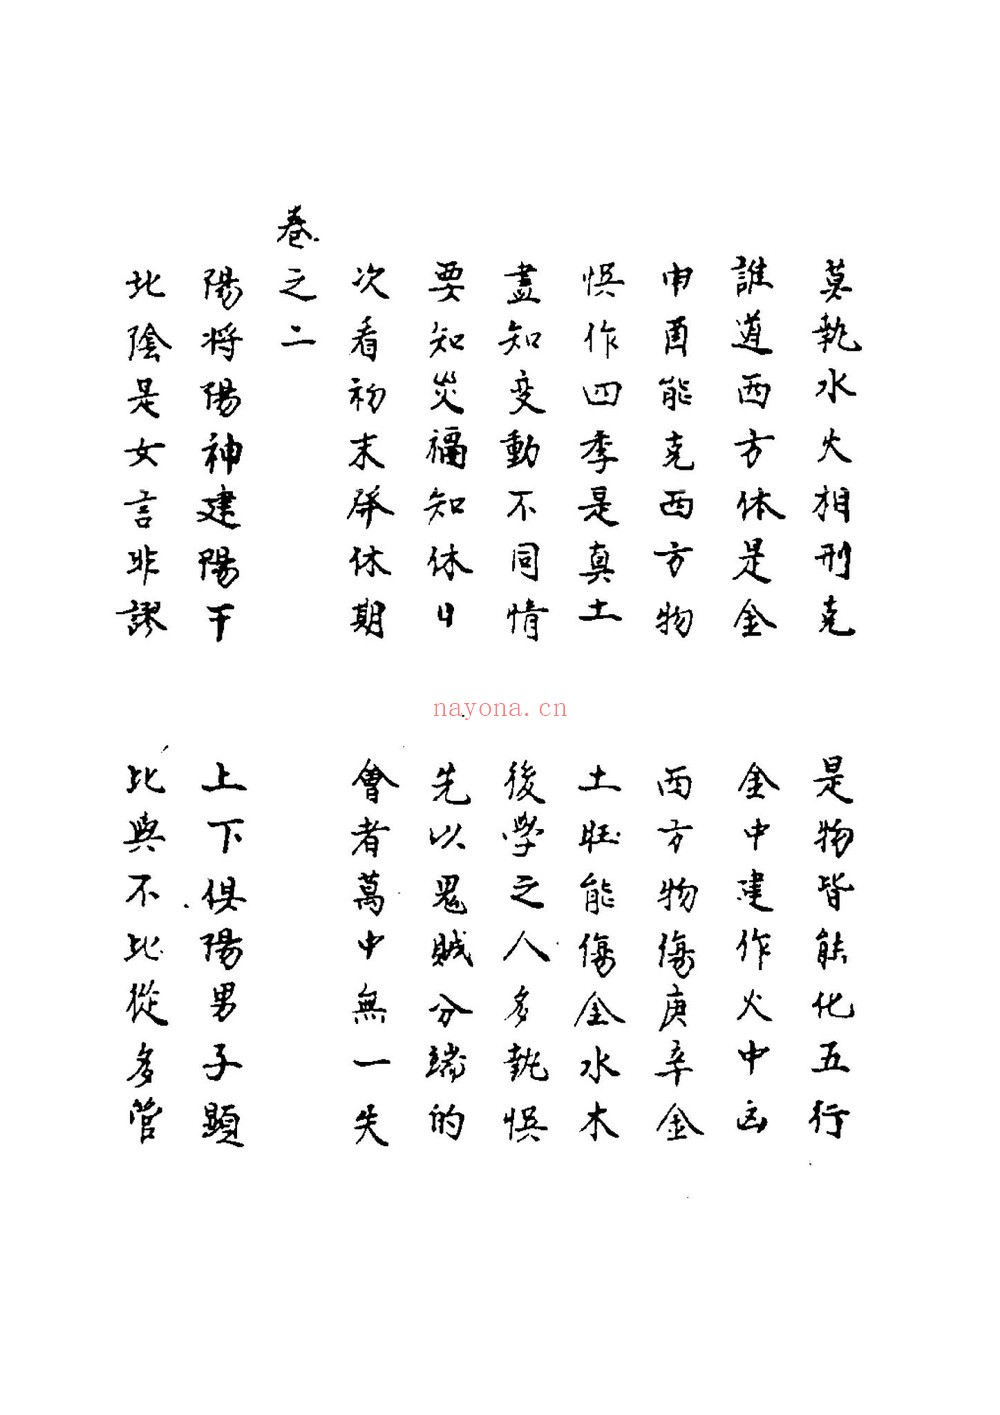 莫執水火相刑克　是物皆能化五行
誰道西方体是金　金中建作火中凶
申酉能克西方物　西方物傷庚辛金
悞作四季是真土　土旺能傷金水木
盡知变動不同情　後學之人多執悞
要知災禍知休日　先以鬼賊分端的
次看初末併休期　會者萬中無一失
卷之二
陽将陽神建陽干　上下俱陽男子顯
北陰是女言非謬　比與不比從多管
nayona.cn